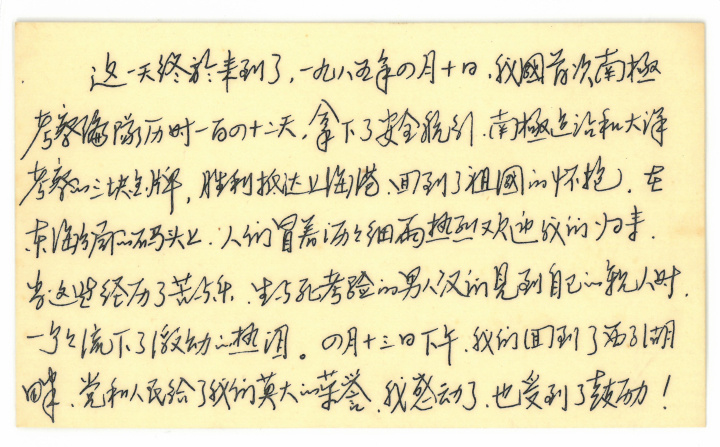 这一天终於来到了,一九八五年四月十日,我國首次南極
考察编隊历时一百四十二天,拿下了安全航行、南極建站和大洋
考察的三块金牌,胜利抵达上海港,回到了祖國的怀抱。在
东海分局的码头上,人们冒着沥沥细雨热烈欢迎我们的归来。
当这些经历了苦与乐、生与死考验的男人汉们見到自己的親人时,
一个个流下了激动的热泪。四月十三日下午,我们回到了西子湖
畔,党和人民给了我们莫大的荣誉,我感动了,也受到了鼓励!